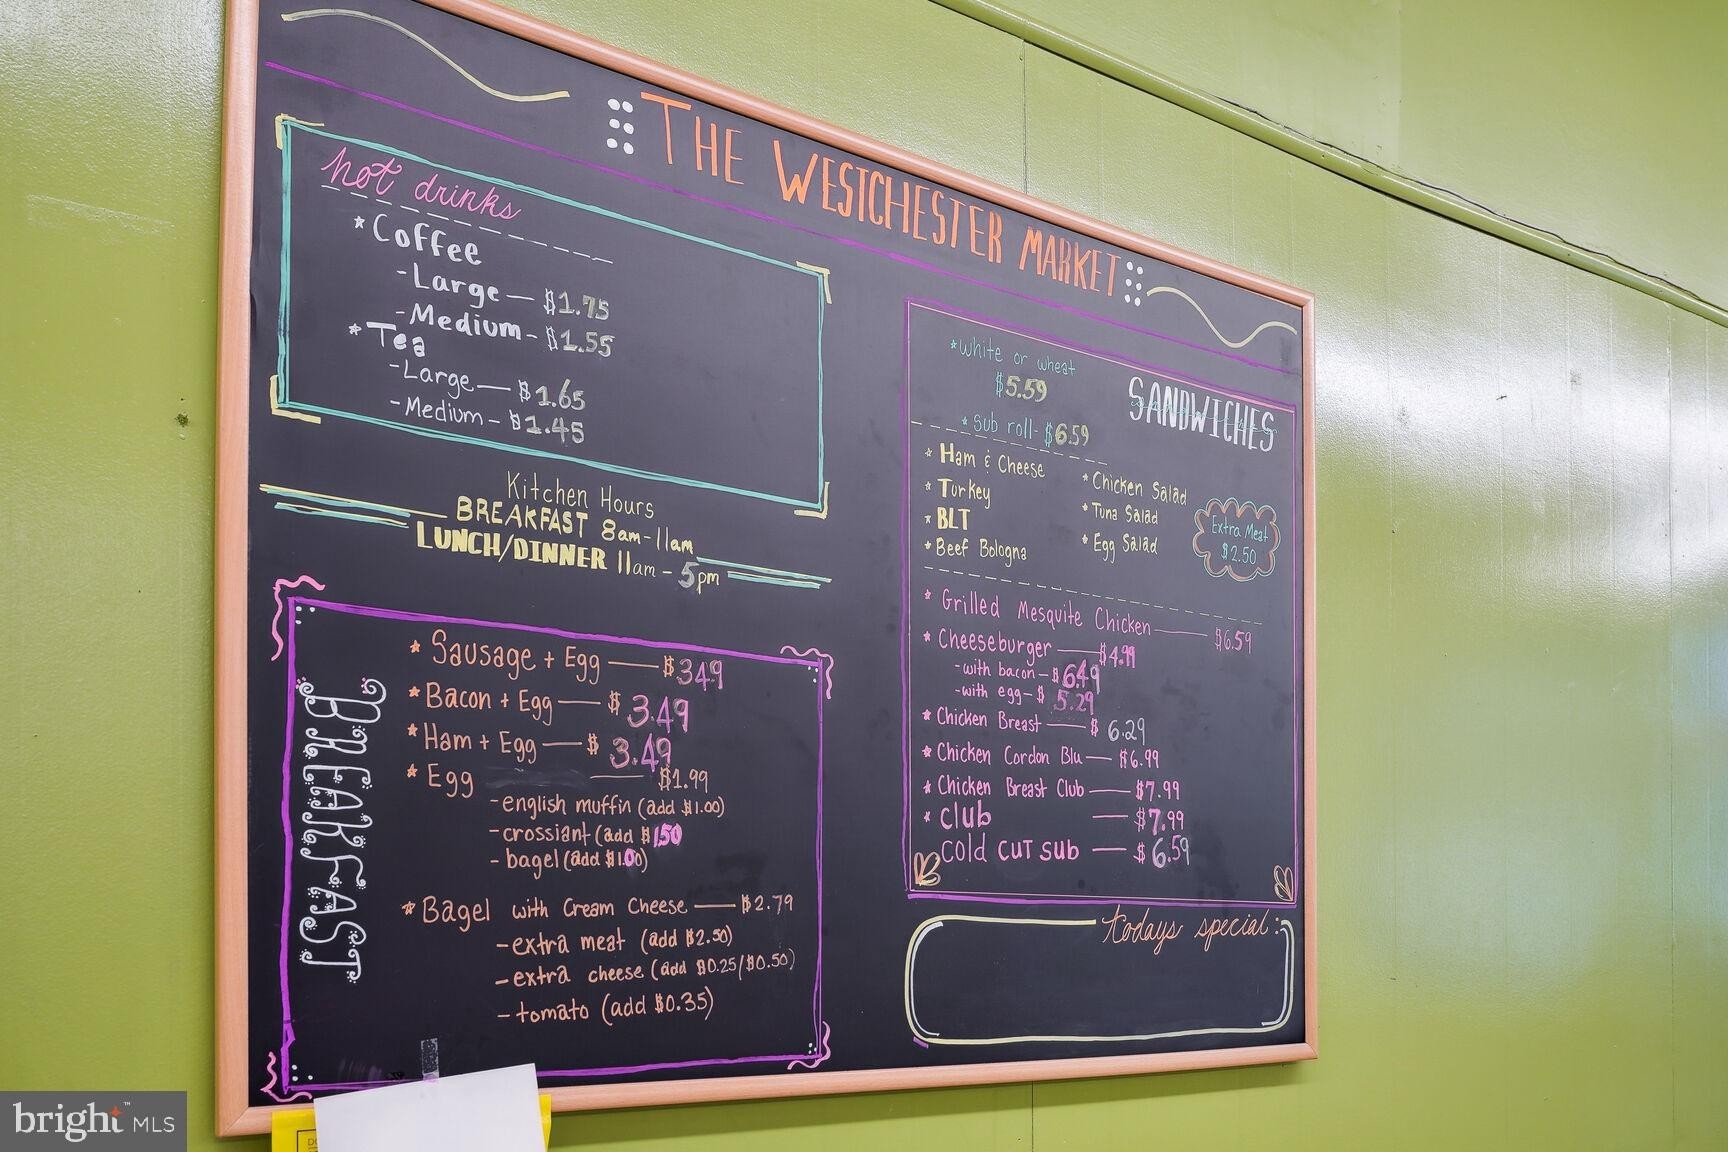 THE WESTCHESTER MARKET
hot drinks
*Coffee
-Large— $1.75
-Medium- $1.55
*Tea
-Large— $1.65
-Medium- $1.45
Kitchen Hours
BREAKFAST 8am-11am
LUNCH/DINNER 11am-5pm
BREAKFAST
*Sausage + Egg — $3.49
*Bacon + Egg — $3.49
*Ham + Egg — $3.49
*Egg — $1.99
-english muffin (add $1.00)
-crossiant (add $1.50
-bagel (add $1.00)
*Bagel with Cream Cheese — $2.79
-extra meat (add $2.50)
-extra cheese (add $0.25/$0.50)
-tomato (add $0.35)
SANDWICHES
*white or wheat
$5.59
*sub roll- $6.59
*Ham & Cheese
*Turkey
*BLT
*Beef Bologna
*Chicken Salad
*Tuna Salad
*Egg Salad
Extra Meat
$2.50
*Grilled Mesquite Chicken — $6.59
*Cheeseburger — $4.99
-with bacon-$6.49
-with egg-$5.29
*Chicken Breast — $6.29
*Chicken Cordon Blu — $6.99
*Chicken Breast Club — $7.99
*Club — $7.99
cold cut sub — $6.59
todays special:
bright MLS